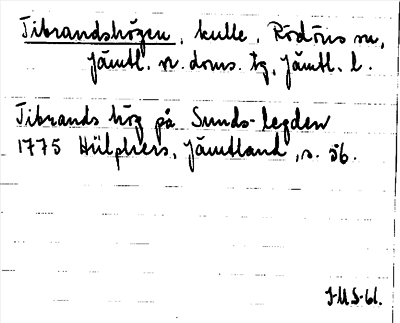 Tibrandshögen, kulle, Rödöns sn,
Jämtl. n. doms. tg, Jämtl. l.
Tibrands hög på Sunds-legden
1775 Hülphers, Jämtland, s. 56.
JMS-61.